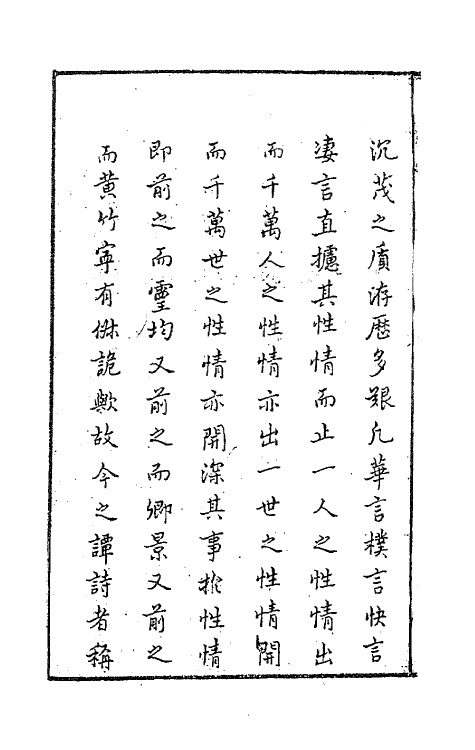 沉茂之质洊歷多艱凡華言樸言快言
凄言直攄其性情而止一人之性情出
而千萬人之性情亦出一世之性情開
而千萬世之性情亦開深其事於性情
即前之而靈均又前之而卿景又前之
而黄竹寕有殊詭歟故今之譚詩者稱